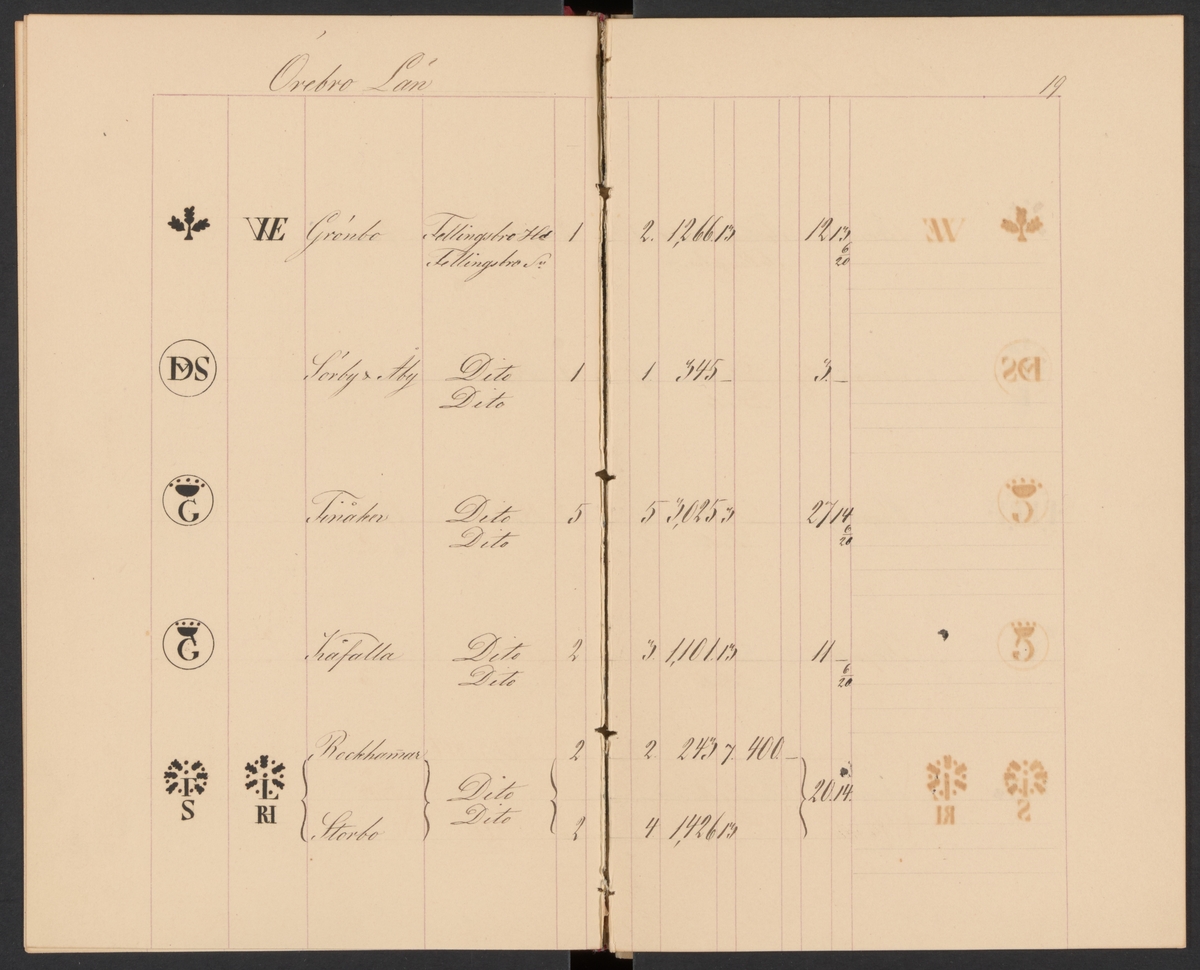 Örebro Län
19.
VVE Grönbo Fellingsbro Hd 1 2. 1,266. 13 12 13
Fellingsbro Sn 6/20
DVS Sörby & Åby Dito 1 1 345 – 3. –
Dito
G Finåker Dito 5 5 3,025 3 27 14
Dito 6/20
G Käfalla Dito 2 3 1,101. 13 11 –
Dito 6/20
Rockhamar 2 2. 243 7. 400. –
L L Dito 20. 14.
S RH Dito
Storbo 2 4 1,426 13